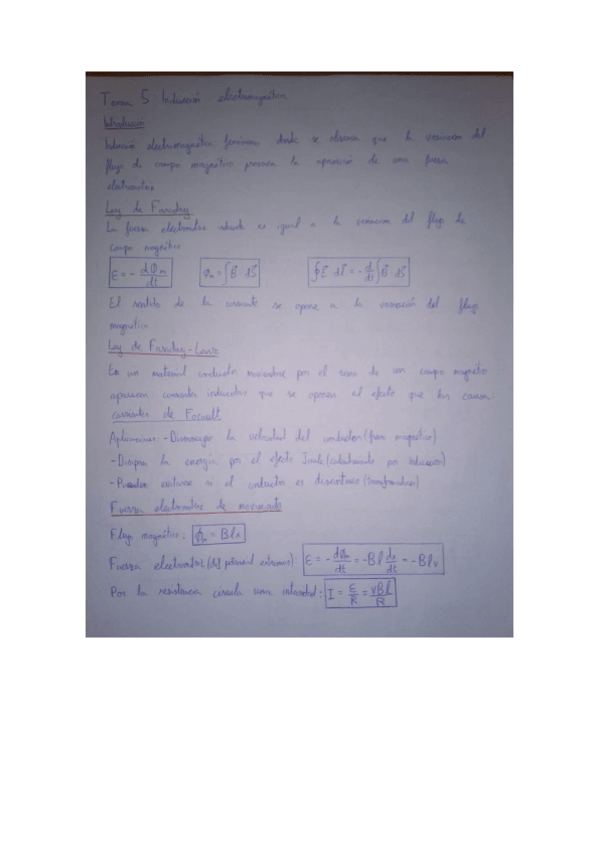 Tema 5 Inducción electromagnética
Introducció
Inducció electromagnética fenómeno donde se observa que la variacion del
flujo de campo magnético provoca la aparición de una fuerza
electromotriz
Ley de Faraday
La fuerza electromotriz inducida es igual a la variacion del flujo de
campo magnético
ε = - dΦm/dt    Φm = ∫B⃗ · dS⃗    ∮E⃗ · dl⃗ = - d/dt ∫B⃗ · dS⃗
El sentido de la corriente se opone a la variación del flujo
magnético
Ley de Faraday-Lenz
En un material conductor moviendose por el seno de un campo magnético
aparecen corrientes inducidas que se oponen al efecto que las causa
corrientes de Foucault
Aplicaciones: - Disminuye la velocidad del conductor (freno magnético)
- Disipa la energía por el efecto Joule (calentamiento por inducción)
- Pueden evitarse si el conductor es discontinuo (transformadores)
Fuerza electromotriz de movimiento
Flujo magnético: Φm = Blx
Fuerza electromotriz (dif potencial extremos): ε = - dΦm/dt = -Bl dx/dt = -Blv
Por la resistencia circula una intensidad: I = ε/R = vBl/R